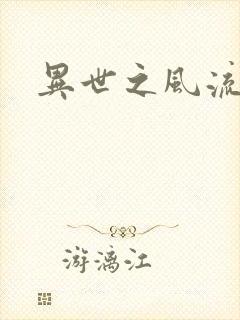 異世之風流
游漓江